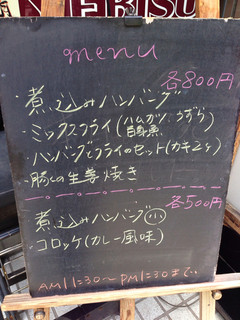 YEBISU
menu
各800円
・煮込みハンバーグ
・ミックスフライ(ハムカツ うずら 白身魚)
・ハンバーグとフライのセット(カキ2ヶ)
・豚の生姜焼き
各500円
煮込みハンバーグ(小)
・コロッケ(カレー風味)
AM11:30〜PM1:30まで